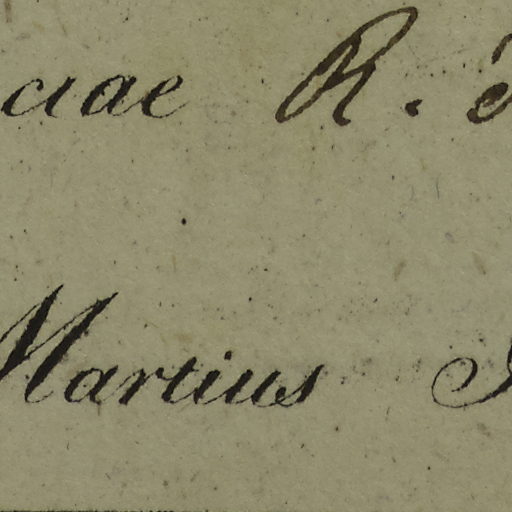 ciae R.
Martius